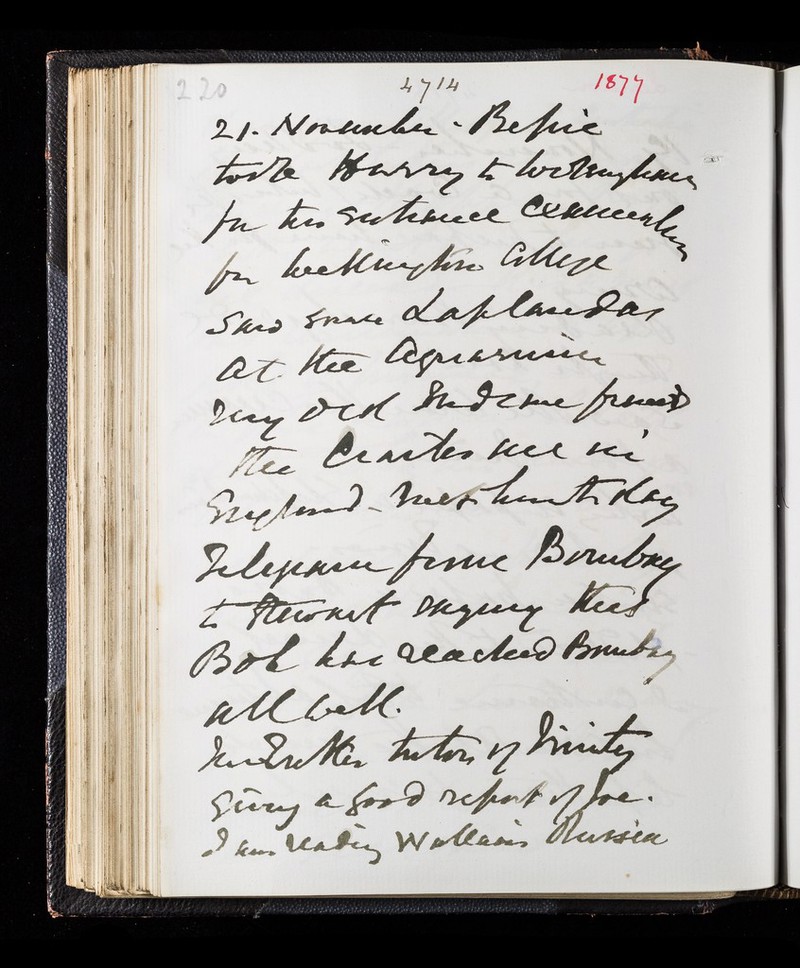 220 4714 1877
21. November - Bessie
took Harry to Wokingham
for his entrance Examination
for Wellington College
Saw some Laplanders
at the Aquarium
my old Indian friend
the are in
England - day
Telegram from Bombay
to Stewart saying that
Bob has reached Bombay
all well.
tutor of Trinity
giving a good report of Joe.
I am reading Wallace's Russia